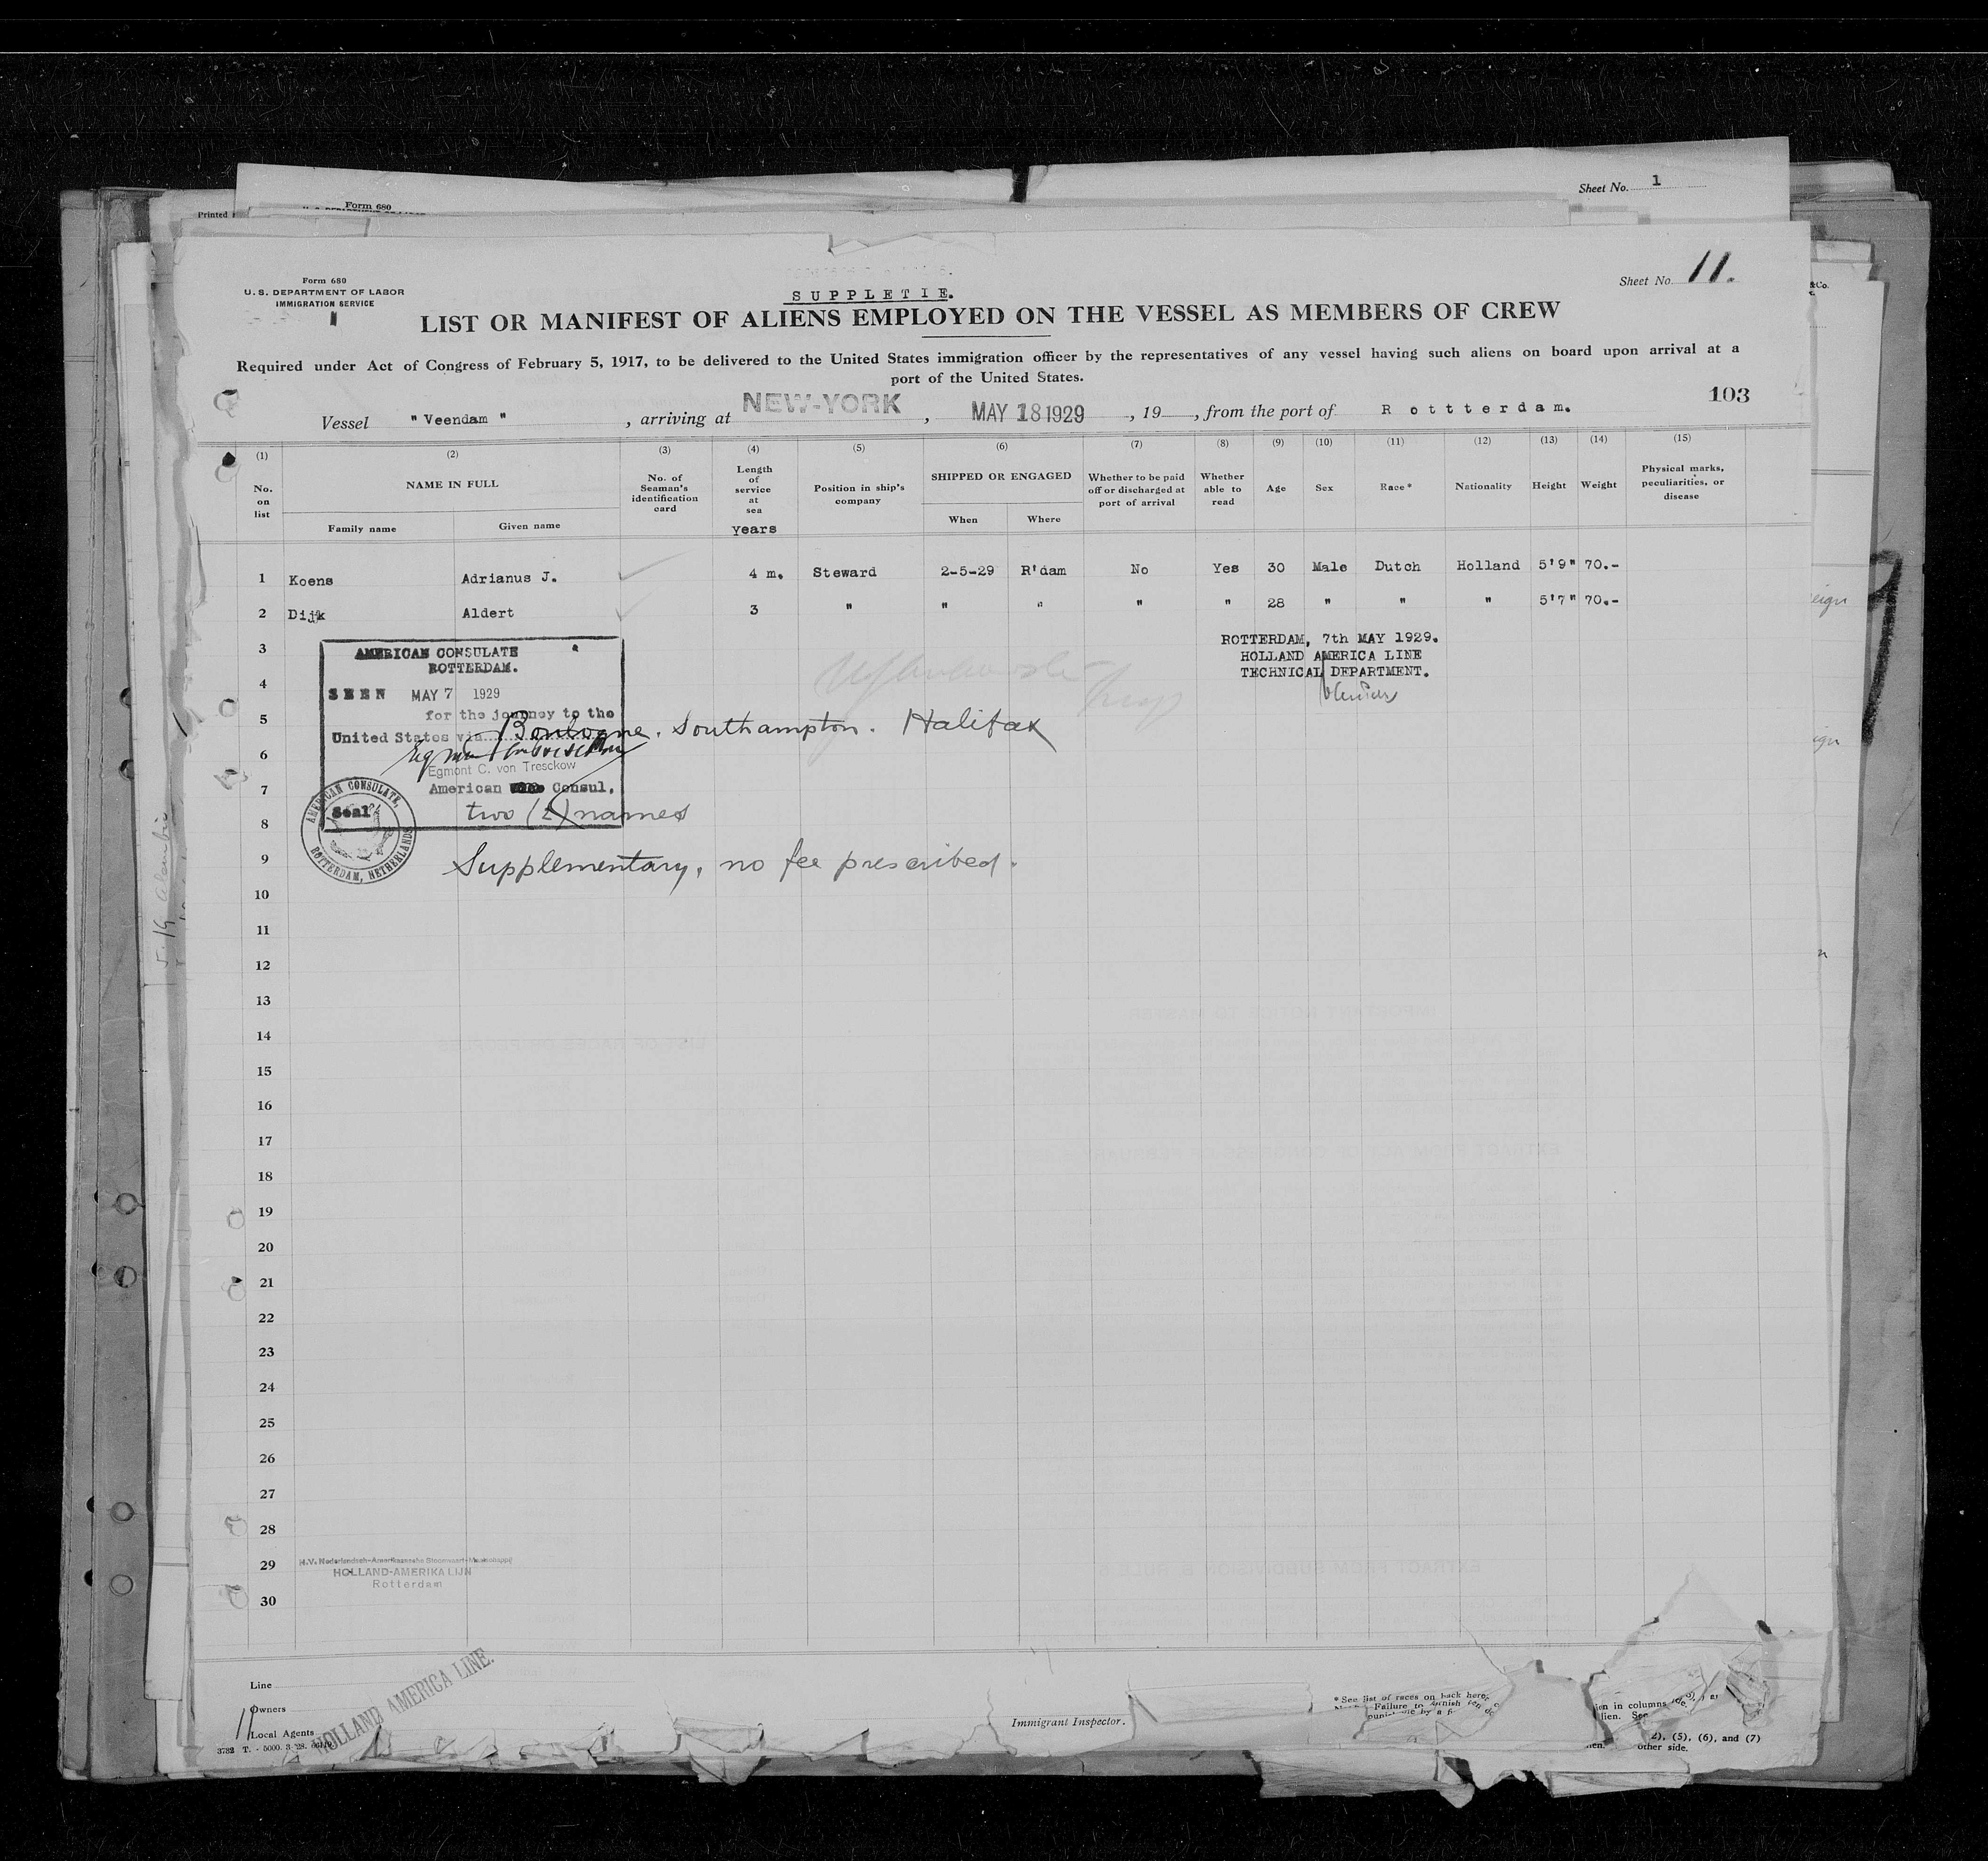 Sheet No. 1
Printed
Form 680
Form 680
U. S. DEPARTMENT OF LABOR
IMMIGRATION SERVICE
Sheet No. 11.
SUPPLETIE.
LIST OR MANIFEST OF ALIENS EMPLOYED ON THE VESSEL AS MEMBERS OF CREW
Required under Act of Congress of February 5, 1917, to be delivered to the United States immigration officer by the representatives of any vessel having such aliens on board upon arrival at a
port of the United States.
103
Vessel " Veendam ", arriving at NEW-YORK, MAY 18 1929, 19, from the port of Rottterdam.
(1) (2) (3) (4) (5) (6) (7) (8) (9) (10) (11) (12) (13) (14) (15)
No. on list
NAME IN FULL
Family name
Given name
No. of Seaman's identification card
Length of service at sea
years
Position in ship's company
SHIPPED OR ENGAGED
When
Where
Whether to be paid off or discharged at port of arrival
Whether able to read
Age
Sex
Race *
Nationality
Height
Weight
Physical marks, peculiarities, or disease
1 Koens Adrianus J. 4 m. Steward 2-5-29 R'dam No Yes 30 Male Dutch Holland 5'9" 70.-
2 Dijk Aldert 3 " " " " " 28 " " " 5'7" 70.-
3
AMERICAN CONSULATE
ROTTERDAM.
ROTTERDAM, 7th MAY 1929.
HOLLAND AMERICA LINE
TECHNICAL DEPARTMENT.
4
SEEN MAY 7 1929
5
for the journey to the
United States via Boulogne. Southampton. Halifax
6
Egmont C. von Tresckow
7
American Consul.
Seal
two (2) names
AMERICAN CONSULATE, ROTTERDAM, NETHERLANDS
8
9
Supplementary, no fee prescribed.
10
11
12
13
14
15
16
17
18
19
20
21
22
23
24
25
26
27
28
29
N.V. Nederlandsch-Amerikaansche Stoomvaart-Maatschappij
HOLLAND-AMERIKA LIJN
Rotterdam
30
Line
Owners
Local Agents
HOLLAND AMERICA LINE.
11
3782 T. - 5000. 3-28.
Immigrant Inspector.
* See list of races on back here
Failure to
in columns
lien. See
(5), (6), and (7)
other side.